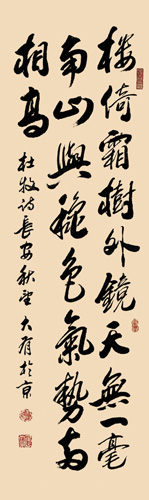 楼倚霜樹外鏡天無一毫
南山與秋色氣勢兩
相高
杜牧詩長安秋望 大有於京